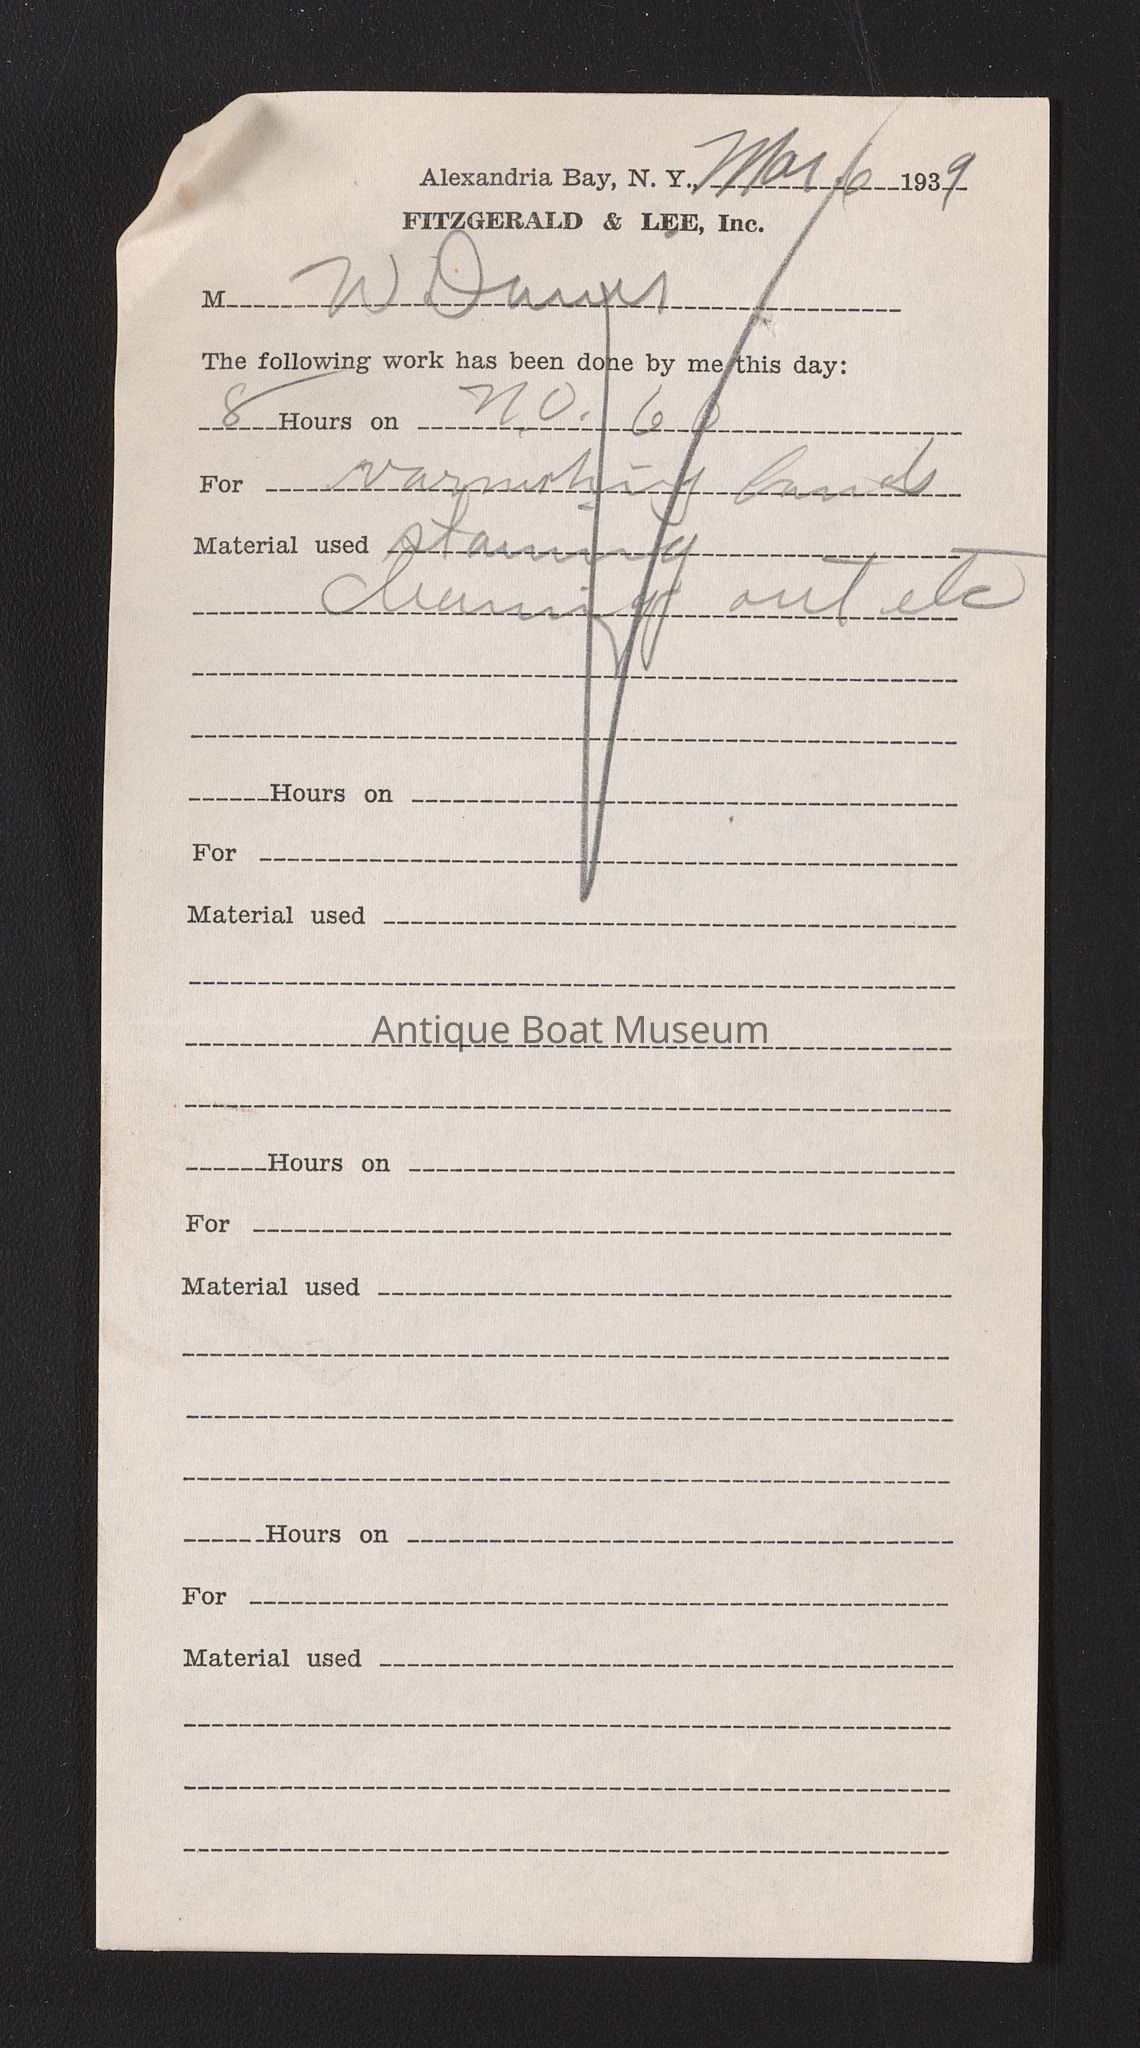 Alexandria Bay, N. Y., Mar 6 1939
FITZGERALD & LEE, Inc.
M W Davis
The following work has been done by me this day:
8 Hours on No. 60
For varnishing bands
Material used staining
cleaning out etc
Hours on
For
Material used
Antique Boat Museum
Hours on
For
Material used
Hours on
For
Material used